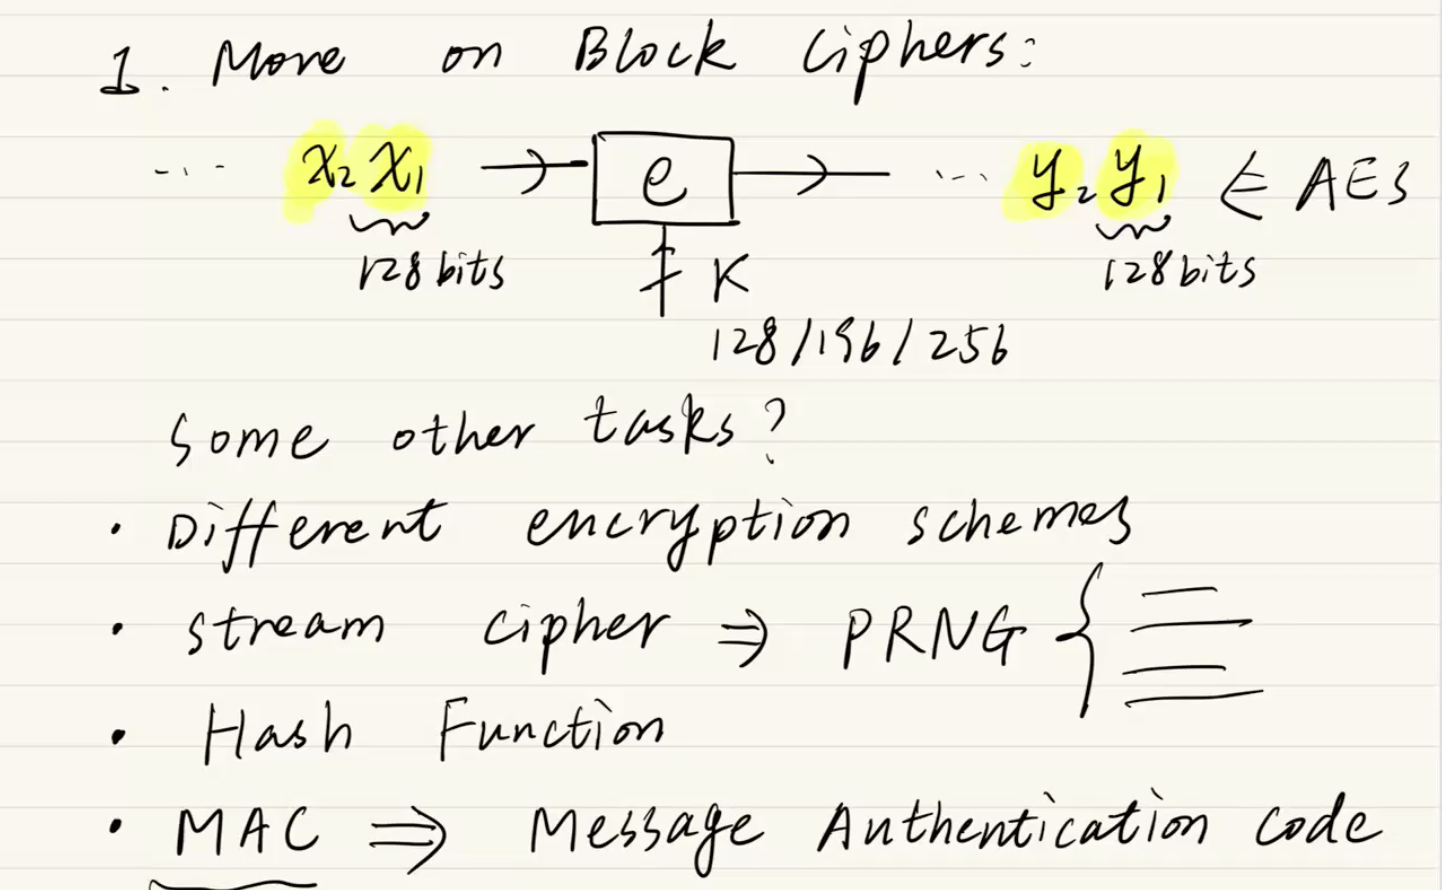 1. More on Block Ciphers:
... x₂ x₁ → e → ... y₂ y₁ ⇐ AES
128 bits K 128 bits
128/196/256
Some other tasks?
• Different encryption schemes
• stream cipher ⇒ PRNG {
• Hash Function
• MAC ⇒ Message Authentication code